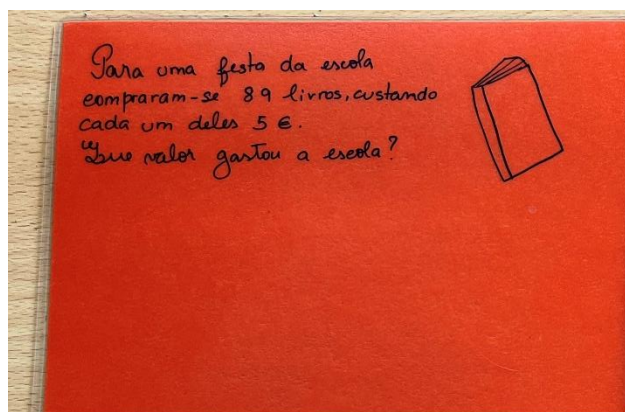 Para uma festa da escola
compraram-se 89 livros, custando
cada um deles 5 €.
Que valor gastou a escola?